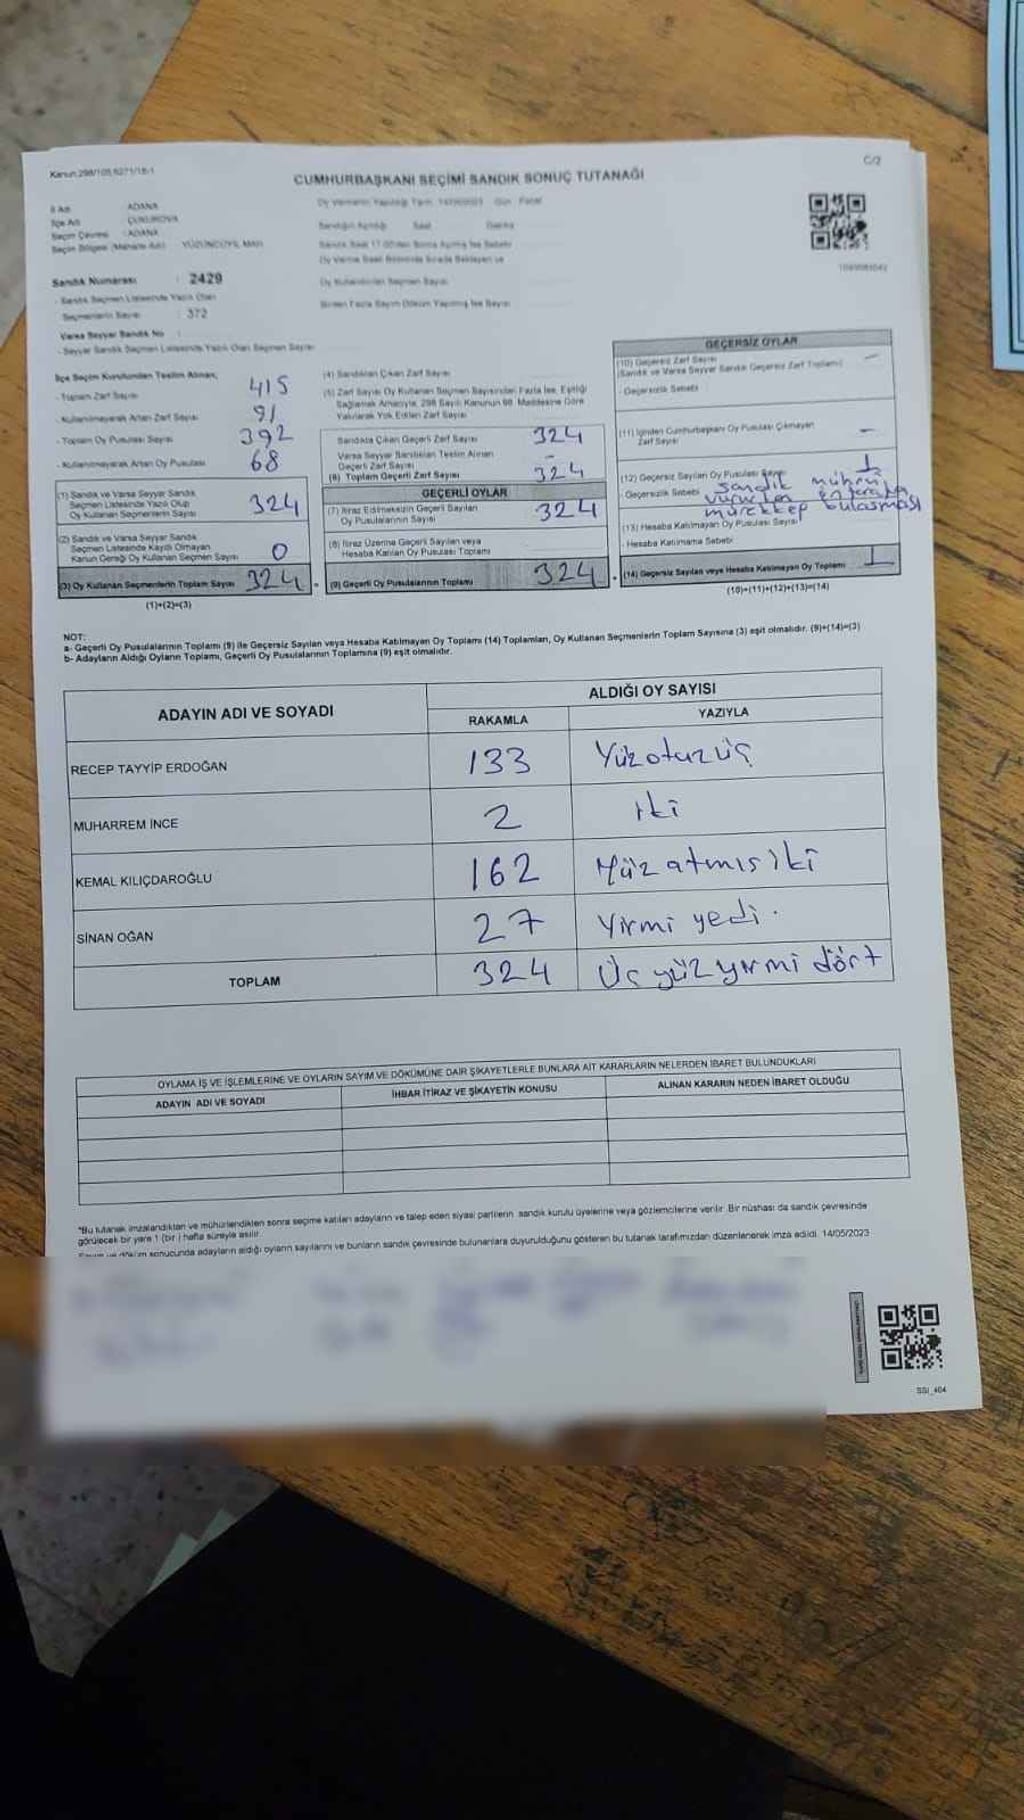 Kanun:298/105,6271/18-1
C/2
CUMHURBAŞKANI SEÇİMİ SANDIK SONUÇ TUTANAĞI
İl Adı ADANA
İlçe Adı ÇUKUROVA
Seçim Çevresi : ADANA
Seçim Bölgesi (Mahalle Adı) YÜZÜNCÜYIL MAH.
Sandık Numarası : 2429
- Sandık Seçmen Listesinde Yazılı Olan
Seçmenlerin Sayısı : 372
Varsa Seyyar Sandık No
- Seyyar Sandık Seçmen Listesinde Yazılı Olan Seçmen Sayısı
Oy Kullandırılan Seçmen Sayısı
Birden Fazla Sayım Döküm Yapılmış İse Sayısı
İlçe Seçim Kurulundan Teslim Alınan;
- Toplam Zarf Sayısı 415
- Kullanılmayarak Artan Zarf Sayısı 91
- Toplam Oy Pusulası Sayısı 392
- Kullanılmayarak Artan Oy Pusulası 68
(1) Sandık ve Varsa Seyyar Sandık
Seçmen Listesinde Yazılı Olup
Oy Kullanan Seçmenlerin Sayısı 324
(2) Sandık ve Varsa Seyyar Sandık
Seçmen Listesinde Kaydı Olmayan
Kanun Gereği Oy Kullanan Seçmen Sayısı 0
(3) Oy Kullanan Seçmenlerin Toplam Sayısı 324
(1)+(2)=(3)
(4) Sandıktan Çıkan Zarf Sayısı
(5) Zarf Sayısı Oy Kullanan Seçmen Sayısından Fazla İse, Eşitliği
Sağlamak Amacıyla, 298 Sayılı Kanunun 98. Maddesine Göre
Yakılarak Yok Edilen Zarf Sayısı
Sandıkta Çıkan Geçerli Zarf Sayısı 324
Varsa Seyyar Sandıktan Teslim Alınan
Geçerli Zarf Sayısı -
(6) Toplam Geçerli Zarf Sayısı 324
GEÇERLİ OYLAR
(7) İtiraz Edilmeksizin Geçerli Sayılan
Oy Pusulalarının Sayısı 324
(8) İtiraz Üzerine Geçerli Sayılan veya
Hesaba Katılan Oy Pusulası Toplamı
(9) Geçerli Oy Pusulalarının Toplamı 324
GEÇERSİZ OYLAR
(10) Geçersiz Zarf Sayısı -
(Sandık ve Varsa Seyyar Sandık Geçersiz Zarf Toplamı)
- Geçersizlik Sebebi
(11) İçinden Cumhurbaşkanı Oy Pusulası Çıkmayan
Zarf Sayısı -
(12) Geçersiz Sayılan Oy Pusulası Sayısı 1
- Geçersizlik Sebebi sandık mühürü
mürekkep bulaşması
(13) Hesaba Katılmayan Oy Pusulası Sayısı
- Hesaba Katılmama Sebebi
(14) Geçersiz Sayılan veya Hesaba Katılmayan Oy Toplamı 1
(10)+(11)+(12)+(13)=(14)
NOT:
a- Geçerli Oy Pusulalarının Toplamı (9) ile Geçersiz Sayılan veya Hesaba Katılmayan Oy Toplamı (14) Toplamları, Oy Kullanan Seçmenlerin Toplam Sayısına (3) eşit olmalıdır. (9)+(14)=(3)
b- Adayların Aldığı Oyların Toplamı, Geçerli Oy Pusulalarının Toplamına (9) eşit olmalıdır.
ADAYIN ADI VE SOYADI
ALDIĞI OY SAYISI
RAKAMLA YAZIYLA
RECEP TAYYİP ERDOĞAN 133 Yüzotuzüç
MUHARREM İNCE 2 iki
KEMAL KILIÇDAROĞLU 162 Yüz atmış iki
SİNAN OĞAN 27 Yirmi yedi.
TOPLAM 324 Üç yüz yirmi dört
OYLAMA İŞ VE İŞLEMLERİNE VE OYLARIN SAYIM VE DÖKÜMÜNE DAİR ŞİKAYETLERLE BUNLARA AİT KARARLARIN NELERDEN İBARET BULUNDUKLARI
ADAYIN ADI VE SOYADI İHBAR İTİRAZ VE ŞİKAYETİN KONUSU ALINAN KARARIN NEDEN İBARET OLDUĞU
*Bu tutanak imzalandıktan ve mühürlendikten sonra seçime katılan adayların ve talep eden siyasi partilerin sandık kurulu üyelerine veya gözlemcilerine verilir. Bir nüshası da sandık çevresinde
görülecek bir yere 1 (bir) hafta süreyle asılır.
Sayım ve döküm sonucunda adayların aldığı oyların sayılarını ve bunların sandık çevresinde bulunanlara duyurulduğunu gösteren bu tutanak tarafımızdan düzenlenerek imza edildi. 14/05/2023
SSI_404